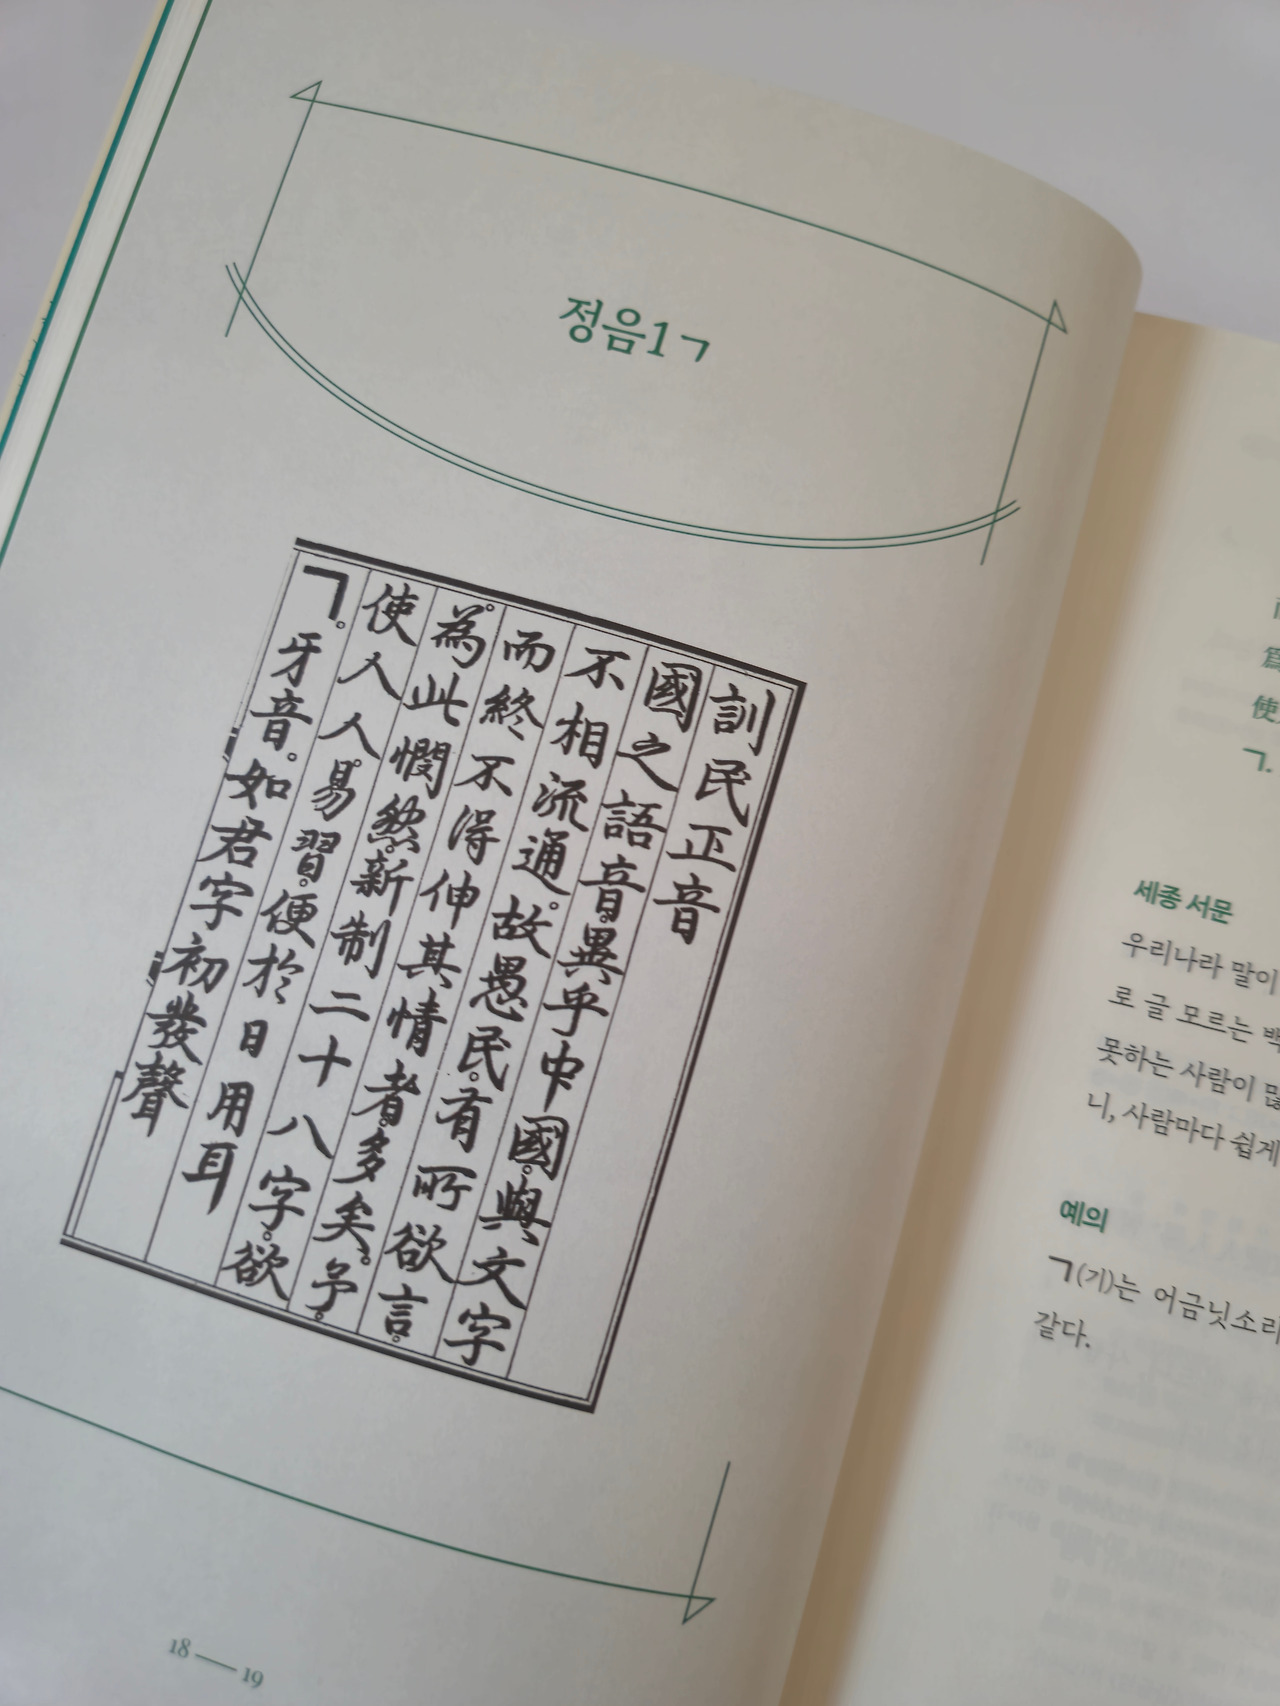 정음1ㄱ
訓民正音
國之語音。異乎中國。與文字
不相流通。故愚民。有所欲言。
而終不得伸其情者。多矣。予。
為此憫然。新制二十八字。欲
使人人易習。便於日用耳
ㄱ。牙音。如君字初發聲
18 — 19
使
ㄱ.
세종 서문
우리나라 말이
로 글 모르는 백
못하는 사람이 많
니, 사람마다 쉽게
예의
ㄱ(기)는 어금닛소리
같다.